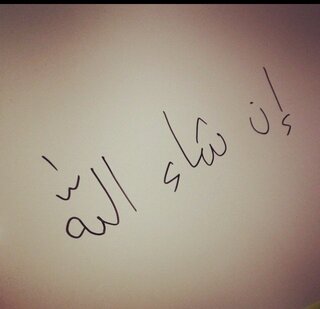 إن شاء اللّٰه